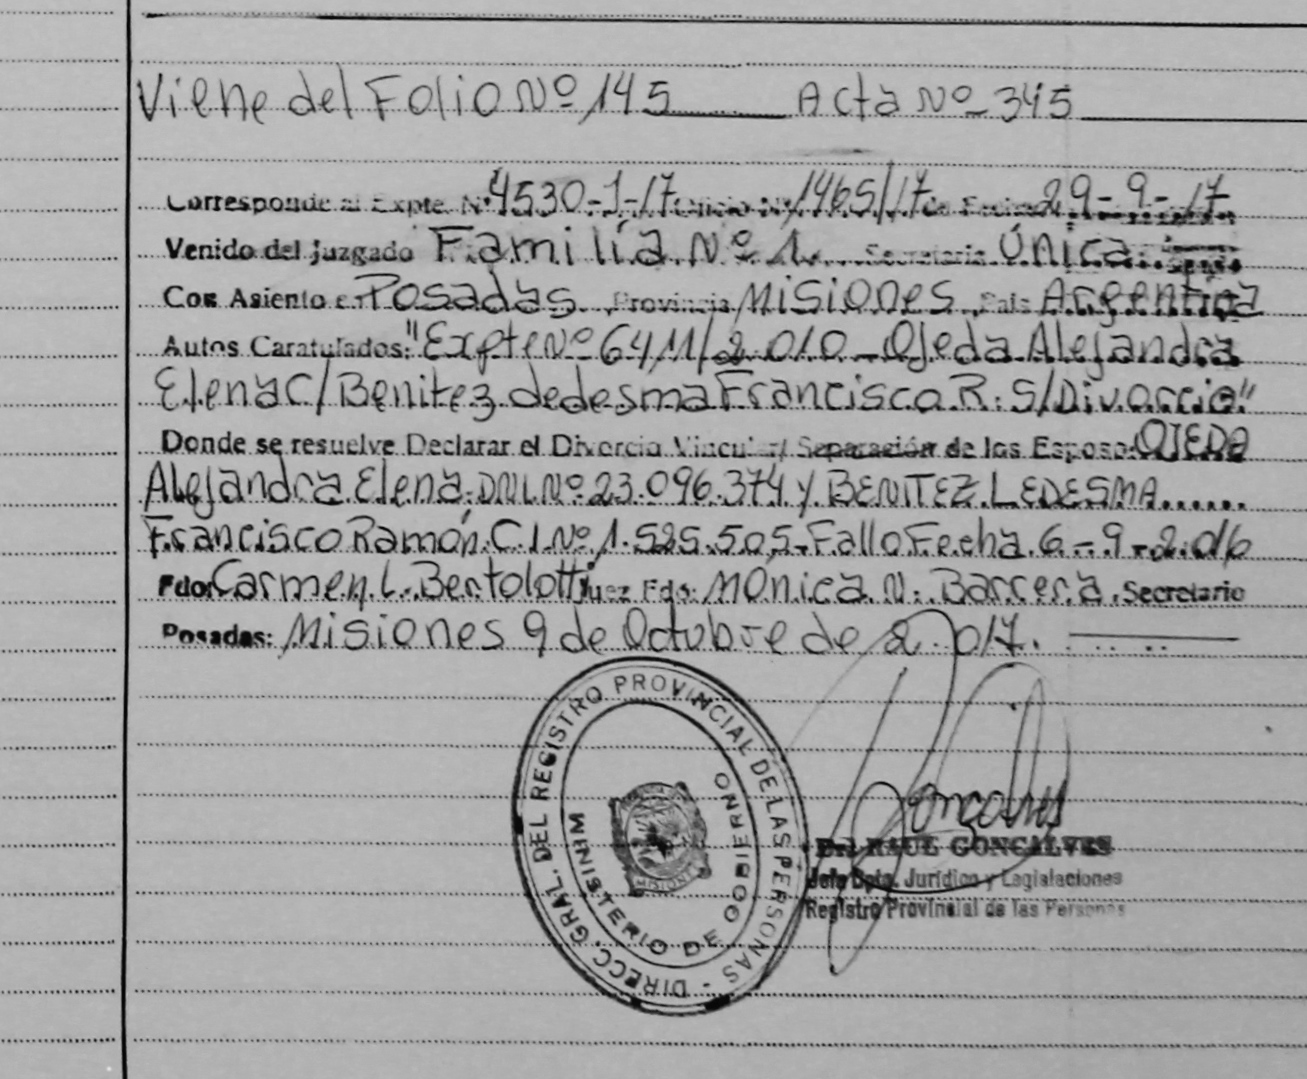 Viene del Folio Nº 145 Acta Nº 345
Corresponde al Expte. Nº 4530-1-17 Oficio Nº 1465/17 de Fecha 29-9-17
Venido del Juzgado Familia Nº 1 Secretaria Única
Con Asiento en Posadas Provincia Misiones País Argentina
Autos Caratulados: "Expte Nº 6411/2.010 - Ojeda Alejandra
Elena C/ Benitez Ledesma Francisco R. S/Divorcio"
Donde se resuelve Declarar el Divorcio Vincular/ Separación de los Esposos: OJEDA
Alejandra Elena. DNI. Nº 23.096.374 y BENITEZ LEDESMA......
Francisco Ramón. C.I. Nº 1.525.505 - Fallo Fecha 6-9-2.016
Fdo: Carmen L. Bertolotti Juez Fdo: Mónica N. Barrera. Secretario
Posadas: Misiones 9 de Octubre de 2.017.
DIRECC. GRAL. DEL REGISTRO PROVINCIAL DE LAS PERSONAS -
MINISTERIO DE GOBIERNO
MISIONES
Goncalves
Dr. RAUL GONCALVES
Jefe Dpto. Jurídico y Legislaciones
Registro Provincial de las Personas